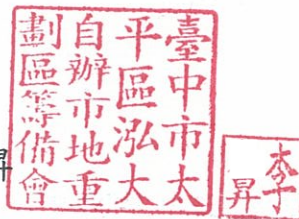 臺中市太
平區泓大
自辦市地重
劃區籌備會
李
昇
昇